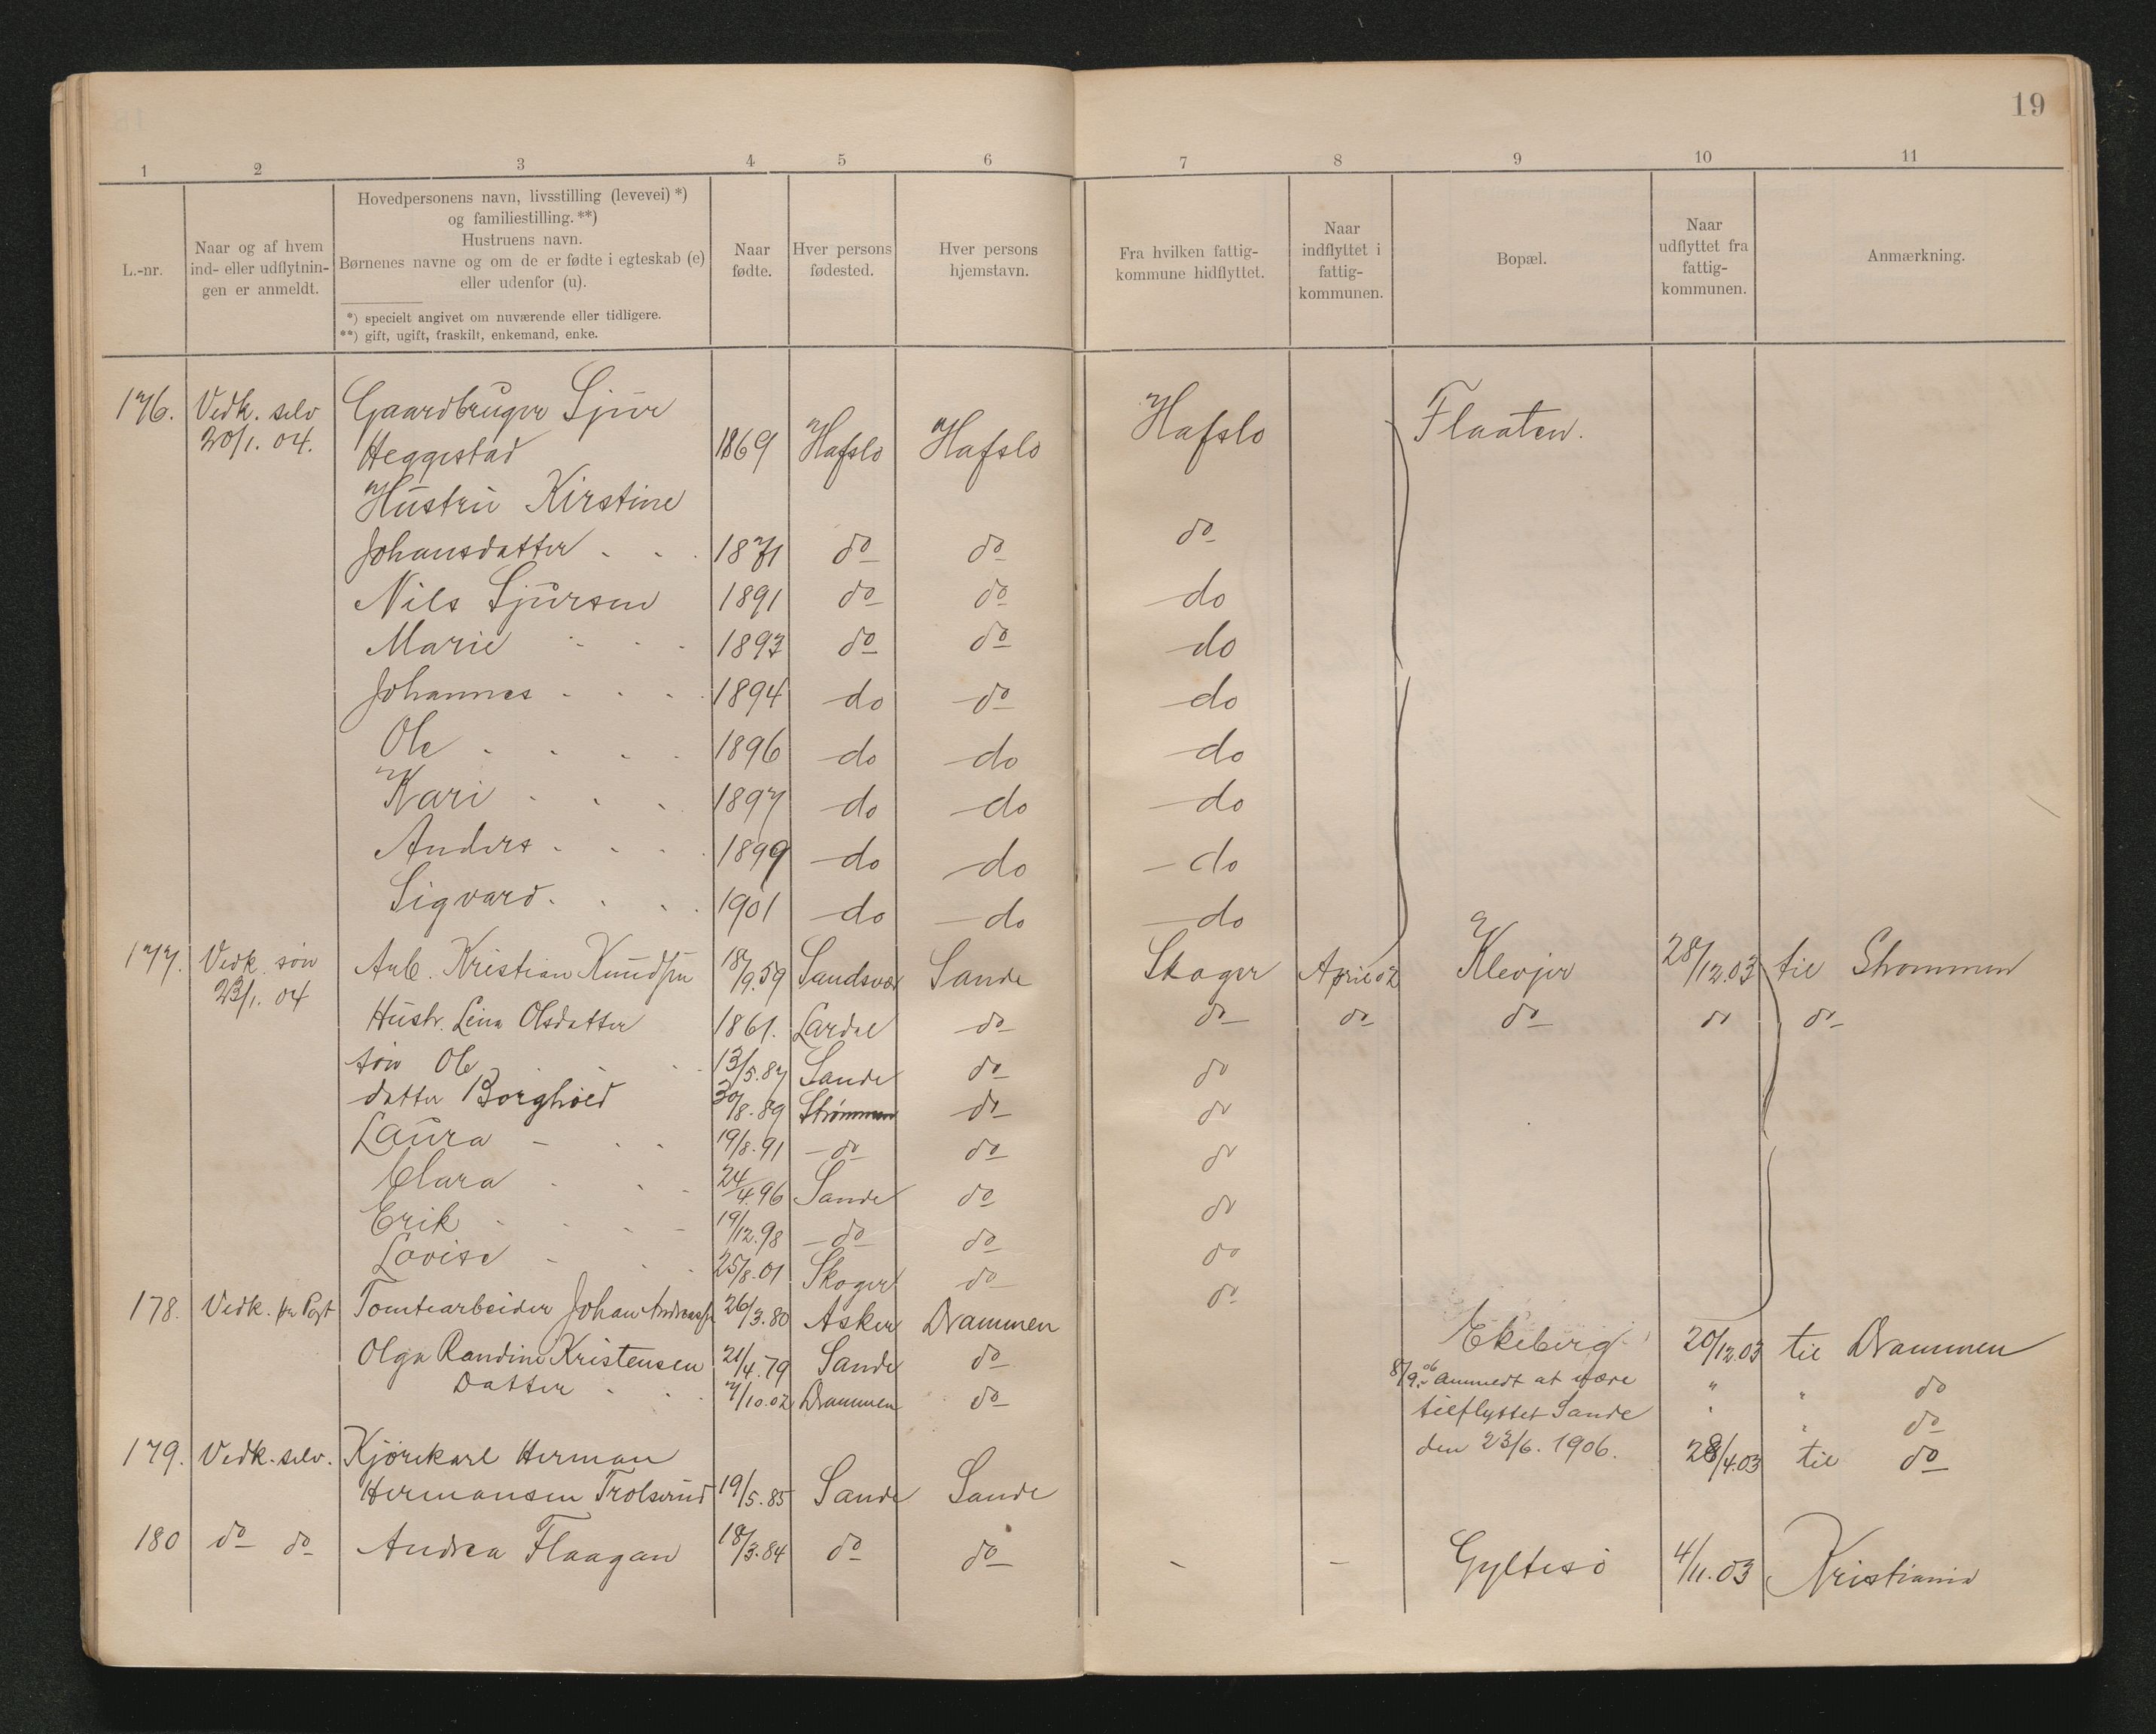 19
1 2 3 4 5 6 7 8 9 10 11
L.-nr.
Naar og af hvem
ind- eller udflytnin-
gen er anmeldt.
Hovedpersonens navn, livsstilling (levevei) *)
og familiestilling. **)
Hustruens navn.
Børnenes navne og om de er fødte i egteskab (e)
eller udenfor (u).
*) specielt angivet om nuværende eller tidligere.
**) gift, ugift, fraskilt, enkemand, enke.
Naar
fødte.
Hver persons
fødested.
Hver persons
hjemstavn.
Fra hvilken fattig-
kommune hidflyttet.
Naar
indflyttet i
fattig-
kommunen.
Bopæl.
Naar
udflyttet fra
fattig-
kommunen.
Anmærkning.
176. Vedk. selv Gaardbruger Sjur
20/1. 04. Heggestad 1869 Hafslo Hafslo Hafslo Flaaten.
Hustru Kirstine
Johansdatter . . . 1871 do do do
Nils Sjursen 1891 do do do
Marie . . . 1893 do do do
Johannes . . . 1894 do do do
Ole . . . . 1896 do do do
Kari . . . 1897 do do do
Anders . . . . 1899 do do do
Sigvard . . . . 1901 do do do
177. Vedk. søn Arb. Kristian Knudsen 18/9.59 Sandsvær Sande Skoger April 02 Klevjer 28/12.03 til Strømmen
23/1. 04 Hustr. Lina Olsdatter 1861. Lardal do do do do do do
søn Ole . . 13/5.87 Sande do do
datter Borghild 30/8.89 Strømmen do do
Laura - . . 19/8.91 do do do
Clara . . . 24/4.96 Sande do do
Erik . . . - 19/12.98 do do do
Lovise - . . 25/8.01 Skoger do do
178. Vedk. pr Post Tomtearbeider Johan Andreassen 26/3.80 Asker Drammen Ekeberg 20/12.03 til Drammen
Olga Randine Kristensen 21/4.79 Sande do 8/9.06 Anmeldt at være " " do
Datter . . . 7/10.02 Drammen do tilflyttet Sande " " do
den 23/6. 1906.
179. Vedk. selv. Kjørekarl Herman 28/4.03 til do
Hermansen Trolsrud 19/5.85 Sande Sande
180 do do Andrea Flaagan 18/3.84 do do - - Gyltesø 4/11.03 Kristiania